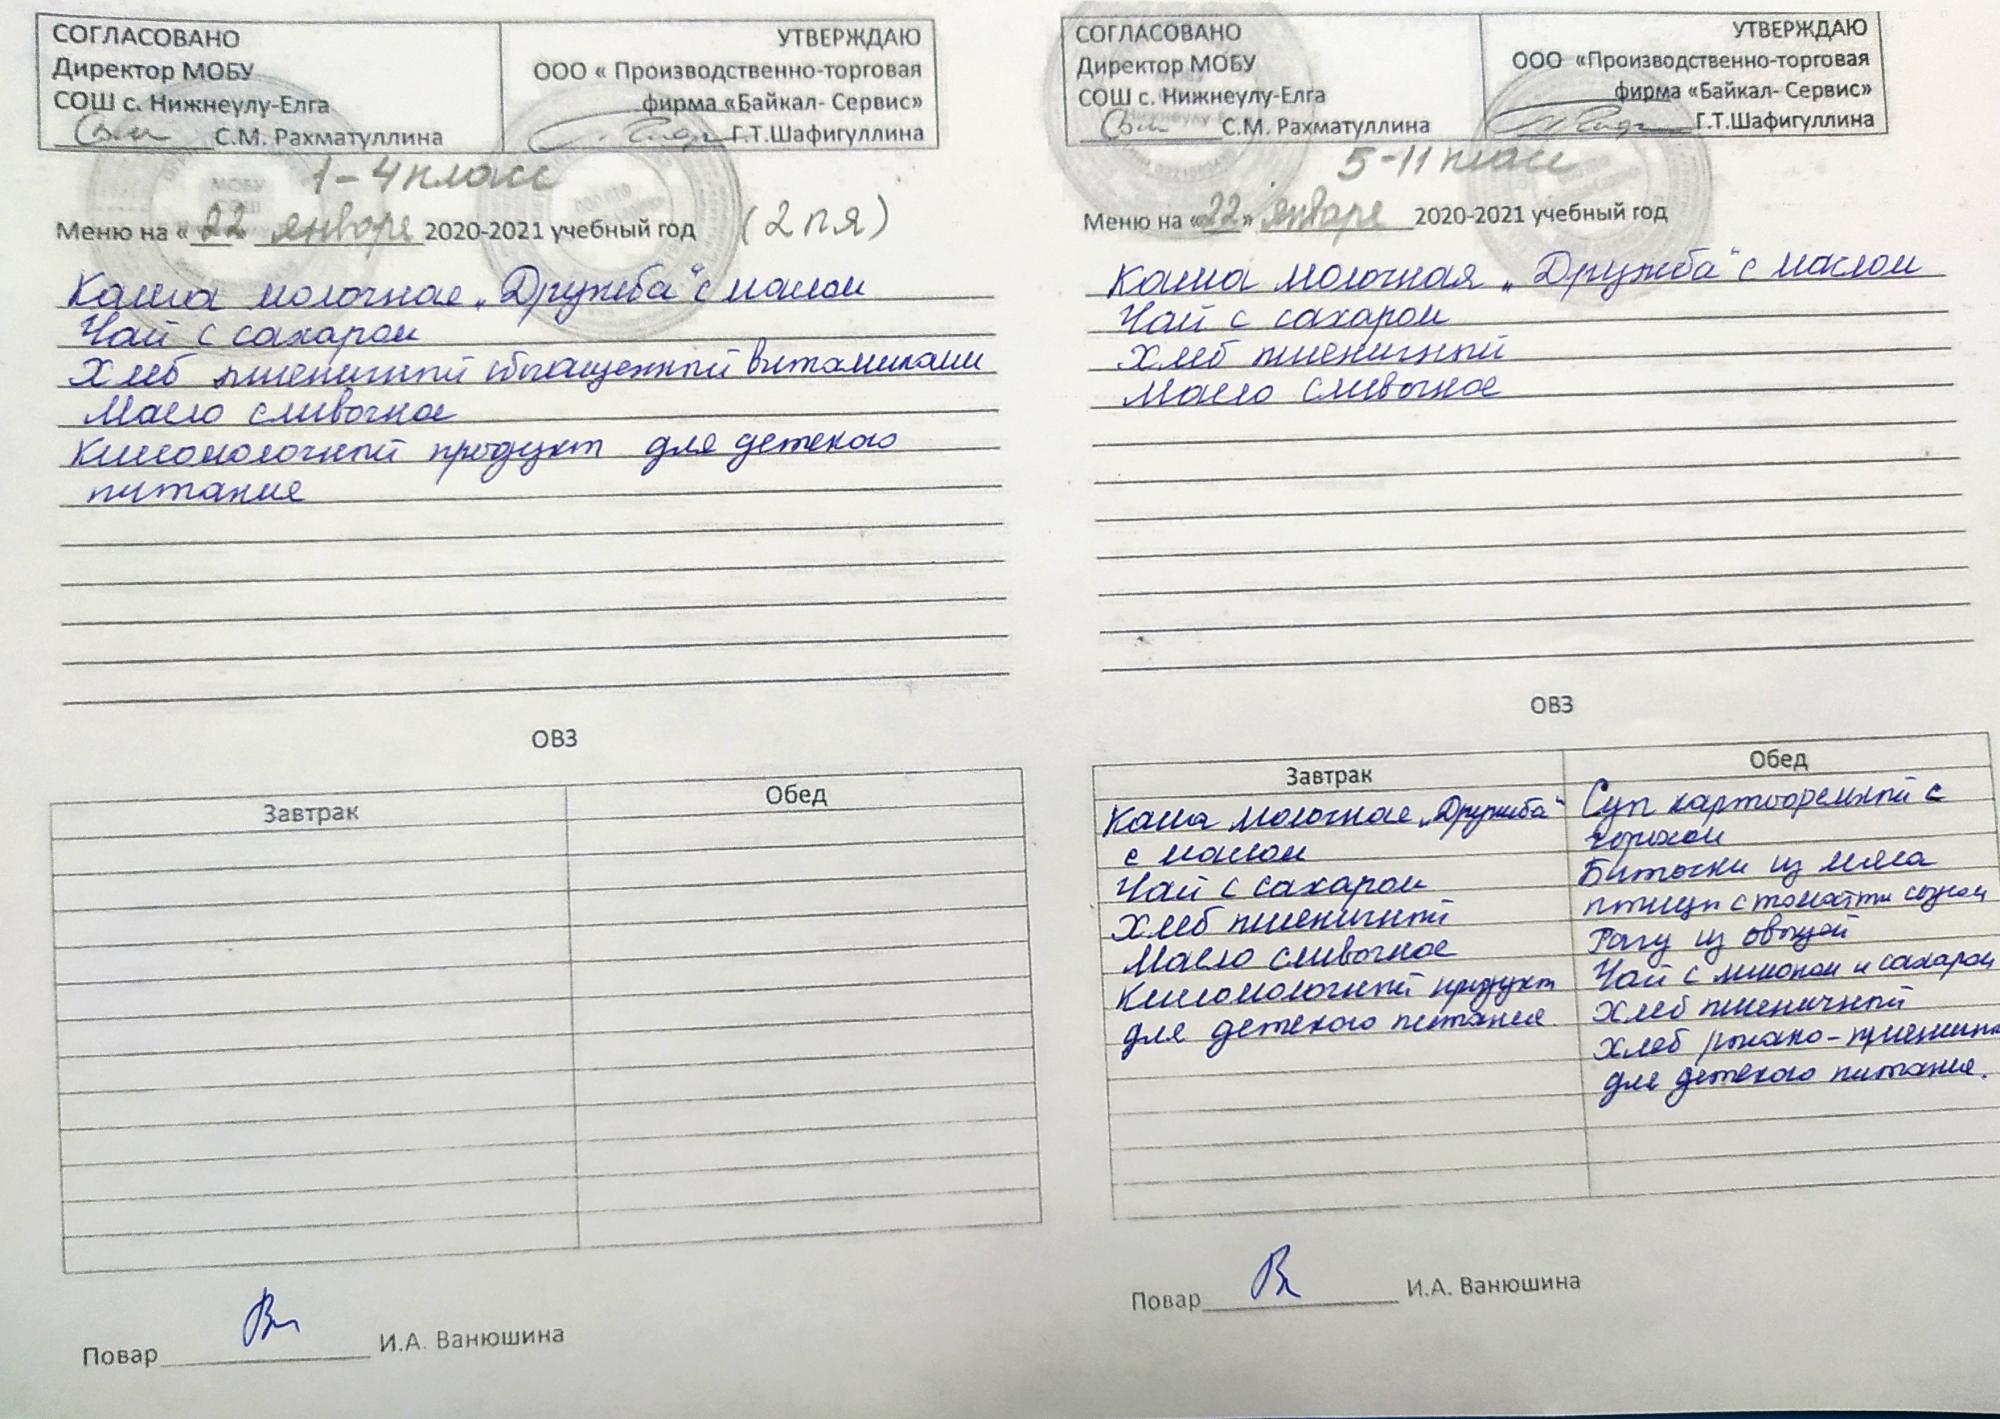 СОГЛАСОВАНО
Директор МОБУ
СОШ с. Нижнеулу-Елга
С.М. Рахматуллина
УТВЕРЖДАЮ
ООО « Производственно-торговая
фирма «Байкал- Сервис»
Г.Т.Шафигуллина
1-4 класс
Меню на «22 января 2020-2021 учебный год (2 ля)
Каша молочная „Дружба“ с маслом
Чай с сахаром
Хлеб пшеничный обогащенный витаминами
Масло сливочное
Кисломолочный продукт для детского
питания
ОВЗ
Завтрак
Обед
Повар И.А. Ванюшина
СОГЛАСОВАНО
Директор МОБУ
СОШ с. Нижнеулу-Елга
С.М. Рахматуллина
УТВЕРЖДАЮ
ООО «Производственно-торговая
фирма «Байкал- Сервис»
Г.Т.Шафигуллина
5-11 класс
Меню на «22» января 2020-2021 учебный год
Каша молочная „Дружба“ с маслом
Чай с сахаром
Хлеб пшеничный
Масло сливочное
ОВЗ
Завтрак
Каша молочная „Дружба“
с маслом
Чай с сахаром
Хлеб пшеничный
Масло сливочное
Кисломолочный продукт
для детского питания
Обед
Суп картофельный с
горохом
Биточки из мяса
птицы с томатн соусом
Рагу из овощей
Чай с лимоном и сахаром
Хлеб пшеничный
Хлеб ржано-пшенич
для детского питания.
Повар И.А. Ванюшина